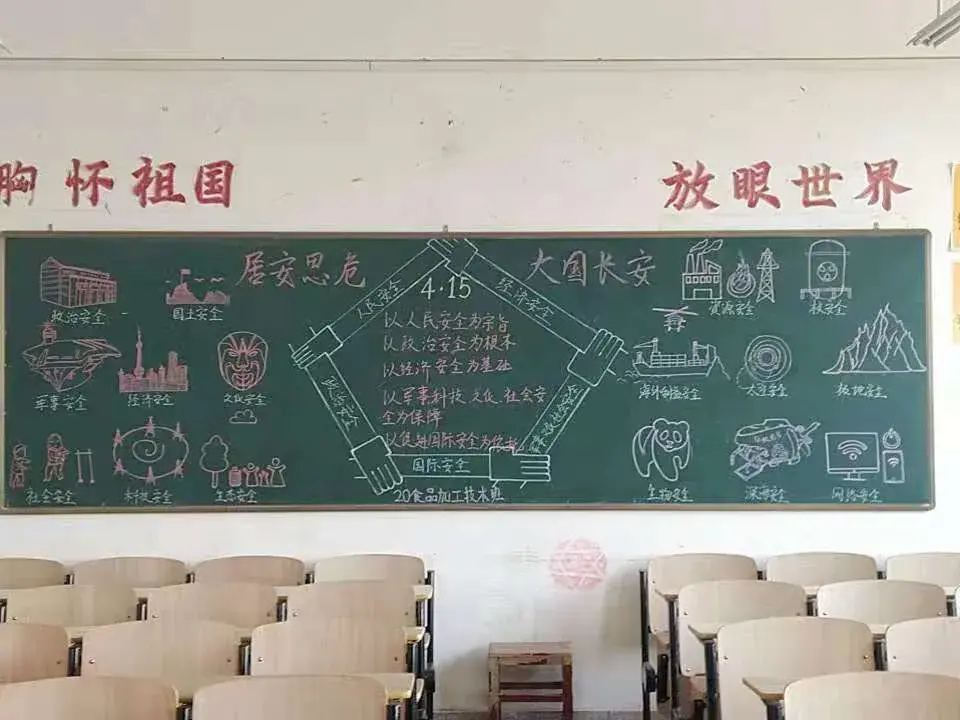 胸怀祖国
放眼世界
居安思危
大国长安
4·15
人民安全
经济安全
政治安全
国际安全
以人民安全为宗旨
以政治安全为根本
以经济安全为基础
以军事科技文化社会安
全为保障
以促进国际安全为依托
20食品加工技术班
政治安全
国土安全
军事安全
经济安全
文化安全
社会安全
科技安全
生态安全
资源安全
核安全
海外利益安全
太空安全
极地安全
生物安全
深海安全
网络安全